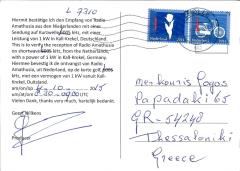 L 7310
Hiermit bestätige ich den Empfang von Radio
Amathusia aus den Niederlanden mit einer
Sendung auf Kurzwelle 6005 kHz, mit mit
einer Leistung von 1 kW in Kall-Krekel, Deutschland.
This is to verify the reception of Radio Amathusia
on shortwave, 6005 kHz, from the Netherlands,
with a power of 1 kW in Kall-Krekel, Germany.
Hiermee bevestig ik de ontvangst van Radio
Amathusia, uit Nederland, op de korte golf 6005
kHz, met een vermogen van 1 kW vanuit Kall-
Krekel, Duitsland.
am/on/op 4-10-2015
um/at/om 8.30-09.00 UTC
Vielen Dank, thanks very much, hartelijk bedankt.
Producer
Nederland
Nederland
Merkouris Gogos
Papadaki 65
GR-54248
Thessaloniki
Greece